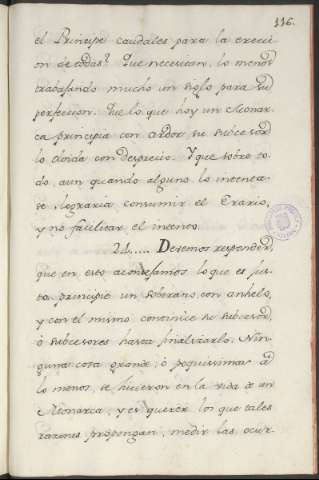 116.
el Principe caudales para la execuci
on de todas? Que necesitan, lo menos
trabajando mucho un siglo para su
perfeccion. Que lo que hoy un Monar-
ca principia con ardor su subcesor
lo olvida con desprecio. Y que sobre to-
do, aun quando alguno lo intenta-
se lograria consumir el Erario,
y no facilitar el intento.
24..... Devemos responder,
que en esto aconsejamos lo que es jus-
to, principie un Soberano, con anhelo,
y con el mismo continúe su subcesor,
ó subcesores hasta finalizarlo. Nin-
guna cosa grande, ó poquissimas al
lo menos, se hicieron en la vida de un
Monarca, y es querer los que tales
razones propongan, medir las ocur-